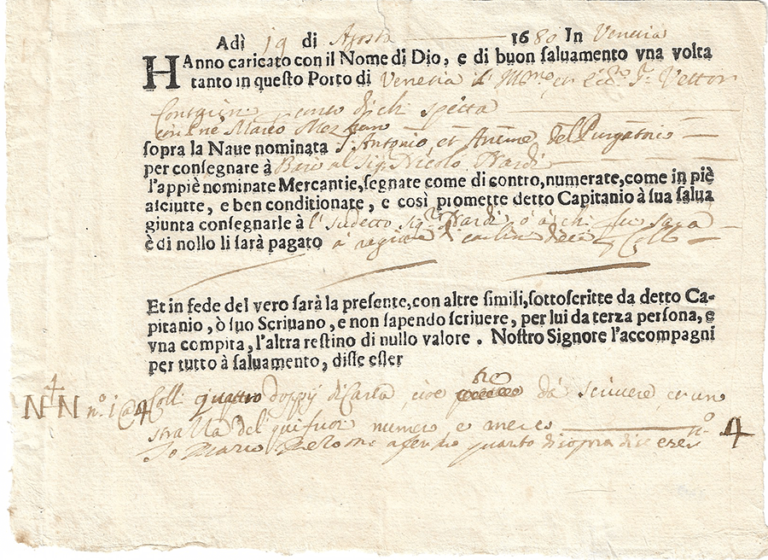 Adì 19 di Agosto 1680 In Venetia
HAnno caricato con il Nome di Dio, e di buon saluamento vna volta
tanto in questo Porto di Venetia il Ill.mo et Ecc.mo S.r Vettor
Contarini conto di chi specta
sopra la Naue nominata S. Antonio et Anime del Purgatorio
per consegnare à Bari al Sig. Nicolo Nardi
l'appiè nominate Mercantie, segnate come di contro, numerate, come in piè
asciutte, e ben conditionate, e così promette detto Capitanio à sua salua
giunta consegnarle à l sudetto Sig.r Nardi ò à chi sarà
è di nollo li sarà pagato à ragion di carlini dieci
Et in fede del vero sarà la presente, con altre simili, sottoscritte da detto Ca-
pitanio, ò suo Scriuano, e non sapendo scriuere, per lui da terza persona, e
vna compita, l'altra restino di nullo valore. Nostro Signore l'accompagni
per tutto à saluamento, disse esser
N N n.o 1 @ 4 Colli quattro doppij di Carta, cioè tre da scriuere et uno
strazza del qui fuori numero e merco n.o 4
Io quanto di sopra dice